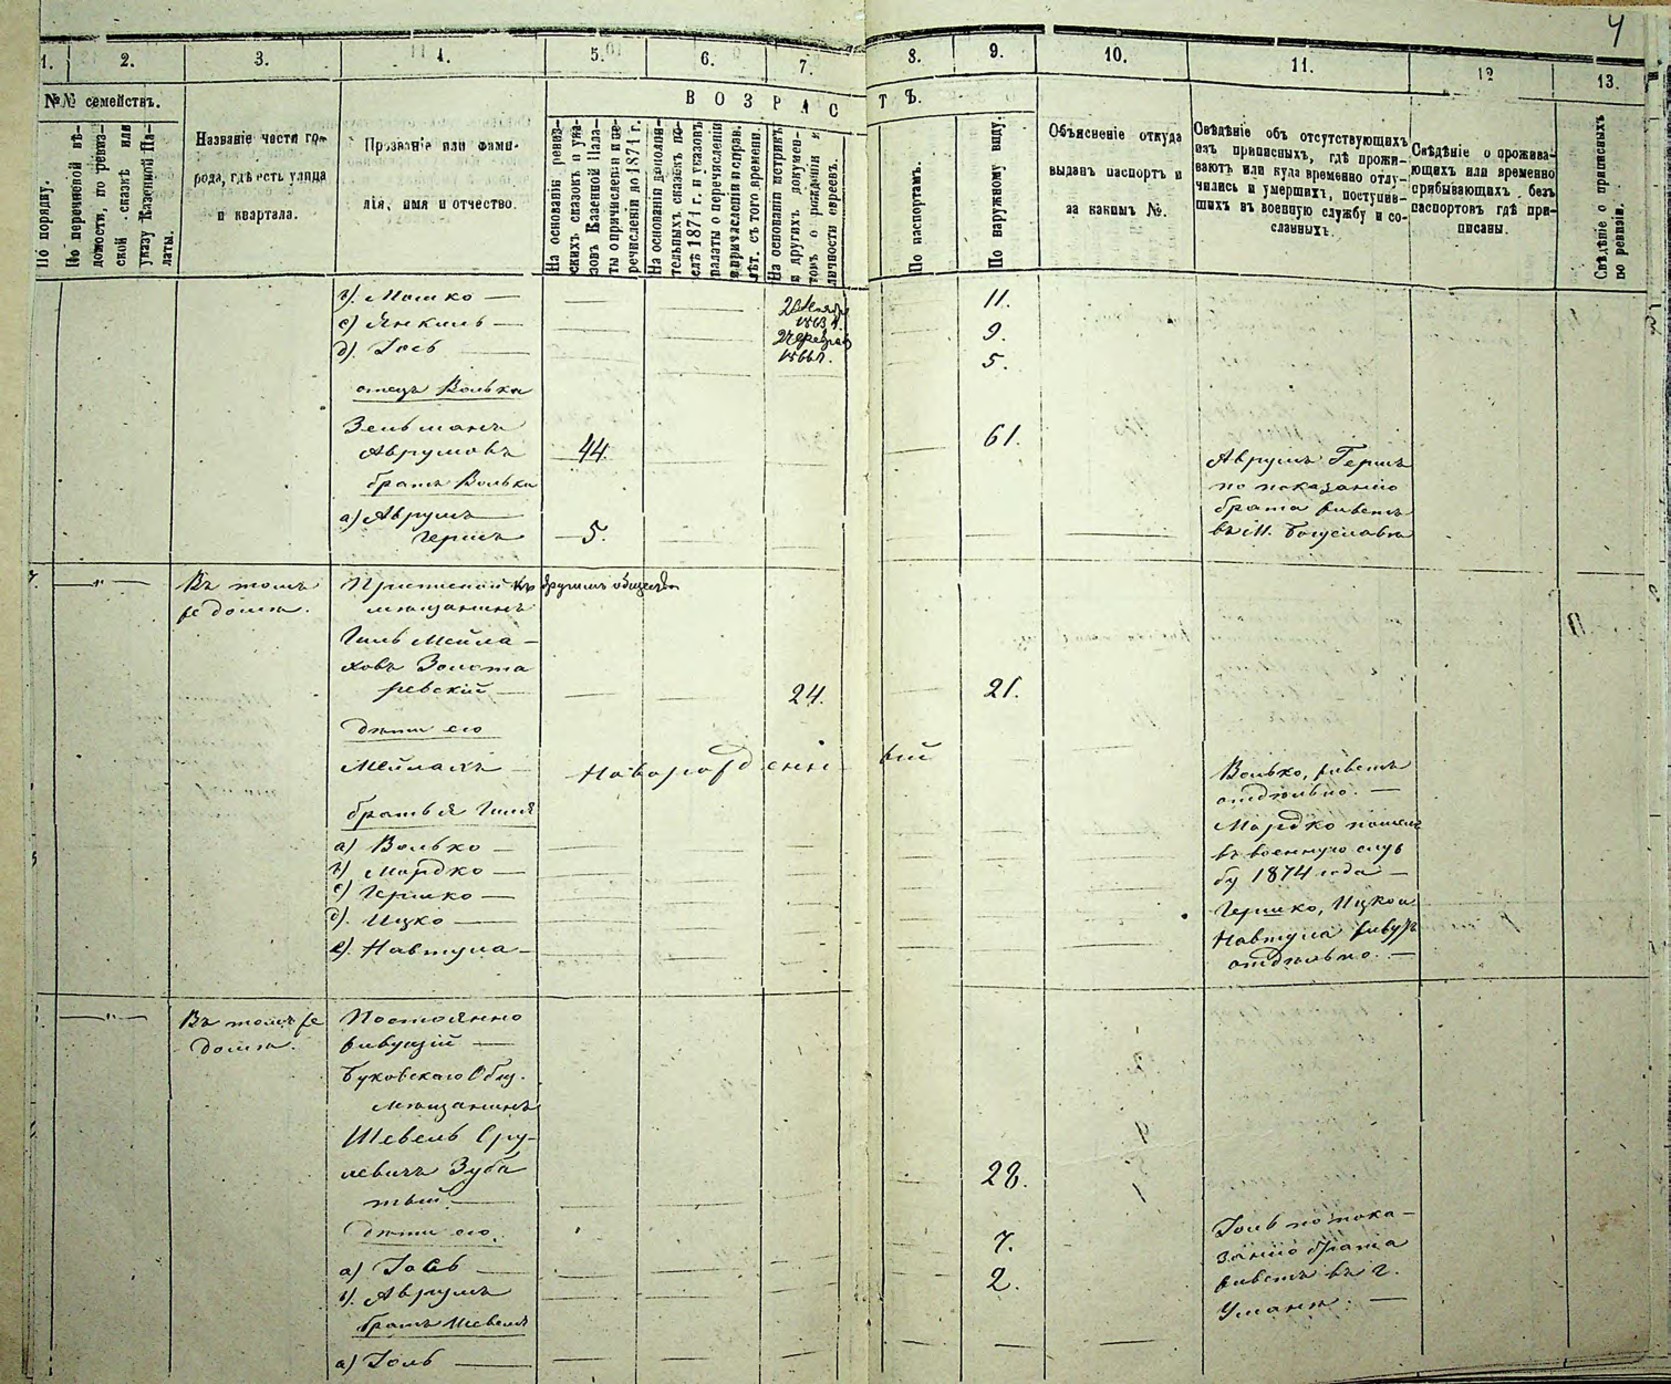 4
1. 2. 3. 4. 5. 6. 7. 8. 9. 10. 11. 12 13.
№№ семействъ.
По порядку.
По перечневой вѣ-
домости, по ревиз-
ской сказкѣ или
указу Казенной Па-
латы.
Названіе части го-
рода, гдѣ есть улица
и квартала.
Прозваніе или фами-
лія, имя и отчество.
ВОЗРАСТЪ.
На основаніи ревиз-
скихъ сказокъ и ука-
зовъ Казенной Пала-
ты о причисленіи и пе-
речисленіи до 1871 г.
На основаніи дополни-
тельныхъ сказокъ по-
слѣ 1871 г. и указовъ
палаты о перечисленіи
и причисленіи и справ.
лѣт. съ того времени.
На основаніи метрикъ
и других докумен-
товъ о рожденіи и
личности евреевъ.
По паспортамъ.
По наружному виду.
Объясненіе откуда
выданъ паспортъ и
за какимъ №.
Свѣдѣніе объ отсутствующихъ
изъ приписныхъ, гдѣ прожи-
ваютъ или куда временно отлу-
чились и умершихъ, поступив-
шихъ въ военную службу и со-
сланныхъ.
Свѣдѣніе о прожива-
ющихъ или временно
прибывающихъ безъ
паспортовъ гдѣ при-
писаны.
Свѣдѣніе о приписныхъ
по ревизіи.
в). Мошко — 11.
1863 г.
с) Янкель — 9.
1866 г.
д). Іось — 5.
отецъ Волька
Зельманъ
Аврумовъ 44. 61.
братъ Вольки
а) Аврумъ
Гершъ 5.
Аврумъ Гершъ
по показанію
брата живетъ
въ М. Богуславѣ
7. —"— Въ томъ
же домѣ.
Приписной къ другимъ обществ
мѣщанинъ
Гиль Мейла-
ховъ Золота
ревскій — 24. 21.
Дѣти его
Мейлахъ — Новорожденный
братья Гиля
а) Волько —
в) Мордко —
с) Гершко —
д). Ицко —
е). Навтула —
Волько, живетъ
отдѣльно. —
Мордко пошелъ
въ военную служ
бу 1874 года —
Гершко, Ицко и
Навтула живутъ
отдѣльно. —
—"— Въ томъ же
домѣ.
Постоянно
живущій —
Буковскаго Общ.
мѣщанинъ
Шевель Сру-
левичъ Зуба
тый — 28.
Дѣти его.
а) Іось — 7.
в). Аврумъ 2.
братъ Шевеля
а) Іоль —
Іоль по пока-
занію брата
живетъ въ г.
Умани. —